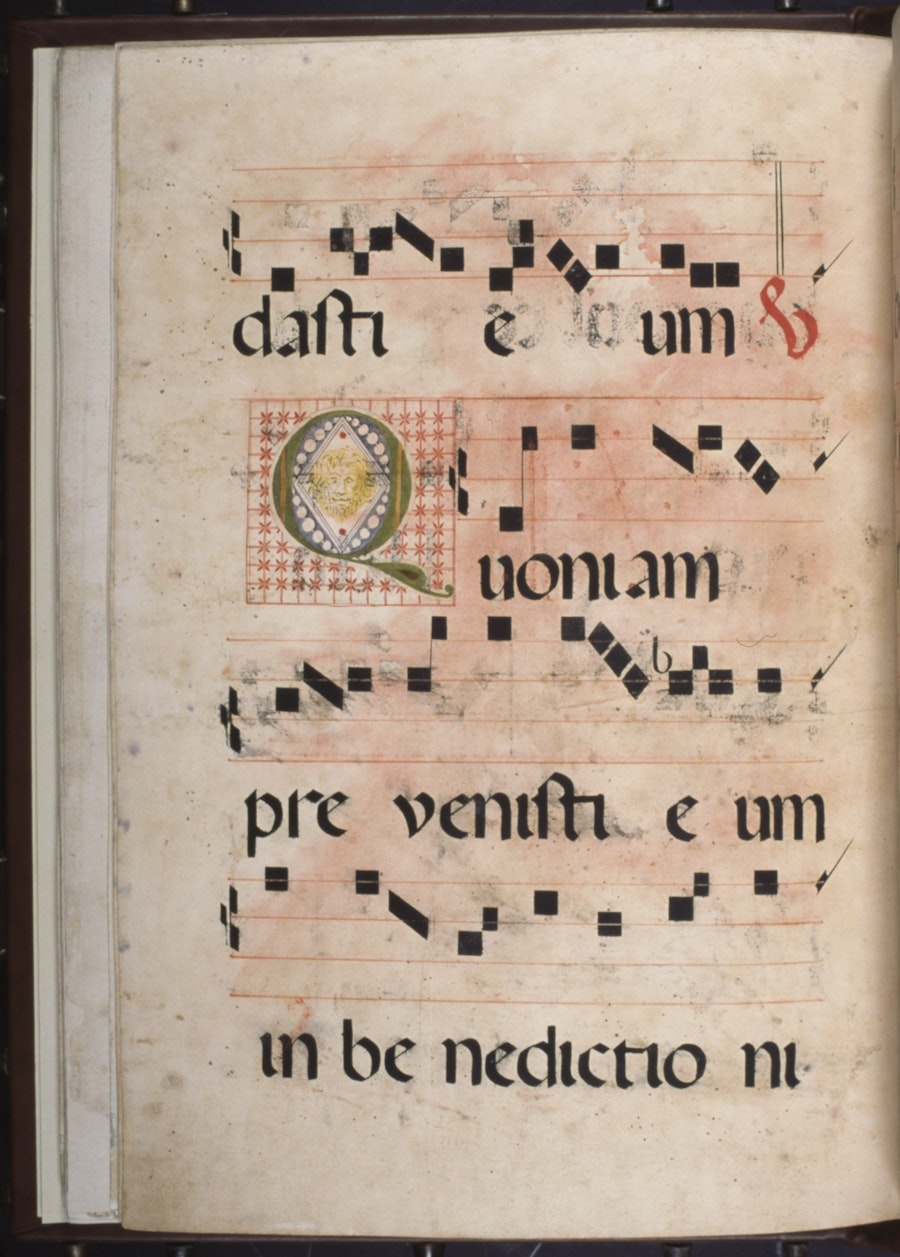 dasti e um ℣
Quoniam
pre venisti e um
in be nedictio ni